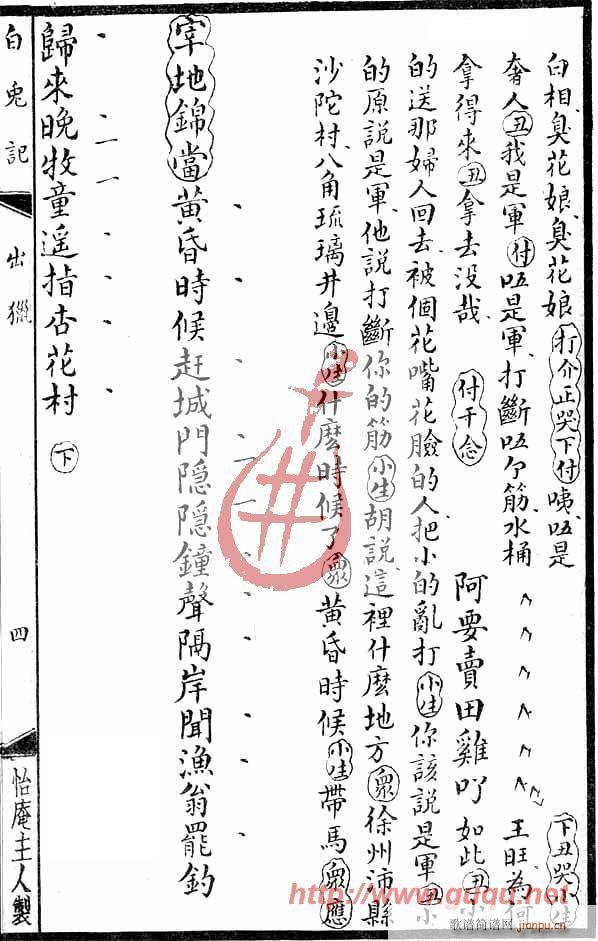 白相臭花娘臭花娘打介正哭下付咦𠍽是下丑哭小生
奢人丑我是軍付𠍽是軍打斷𠍽个筋水桶王旺為何
拿得來丑拿去没哉付干念阿要賣田雞吖如此丑小
的送那婦人回去被個花嘴花臉的人把小的亂打小生你該說是軍丑小
的原說是軍他說打斷你的筋小生胡說這裡什麽地方眾徐州沛縣
沙陀村八角琉璃井邊小生什麽時候了眾黃昏時候小生帶馬眾應
宰地錦當黃昏時候赶城門隱隱鐘聲隔岸聞漁翁罷釣
歸來晚牧童遥指杏花村下
白兎記 出獵 四 怡庵主人製
http://www.guqu.net
歌谱简谱网
jianpu.cn